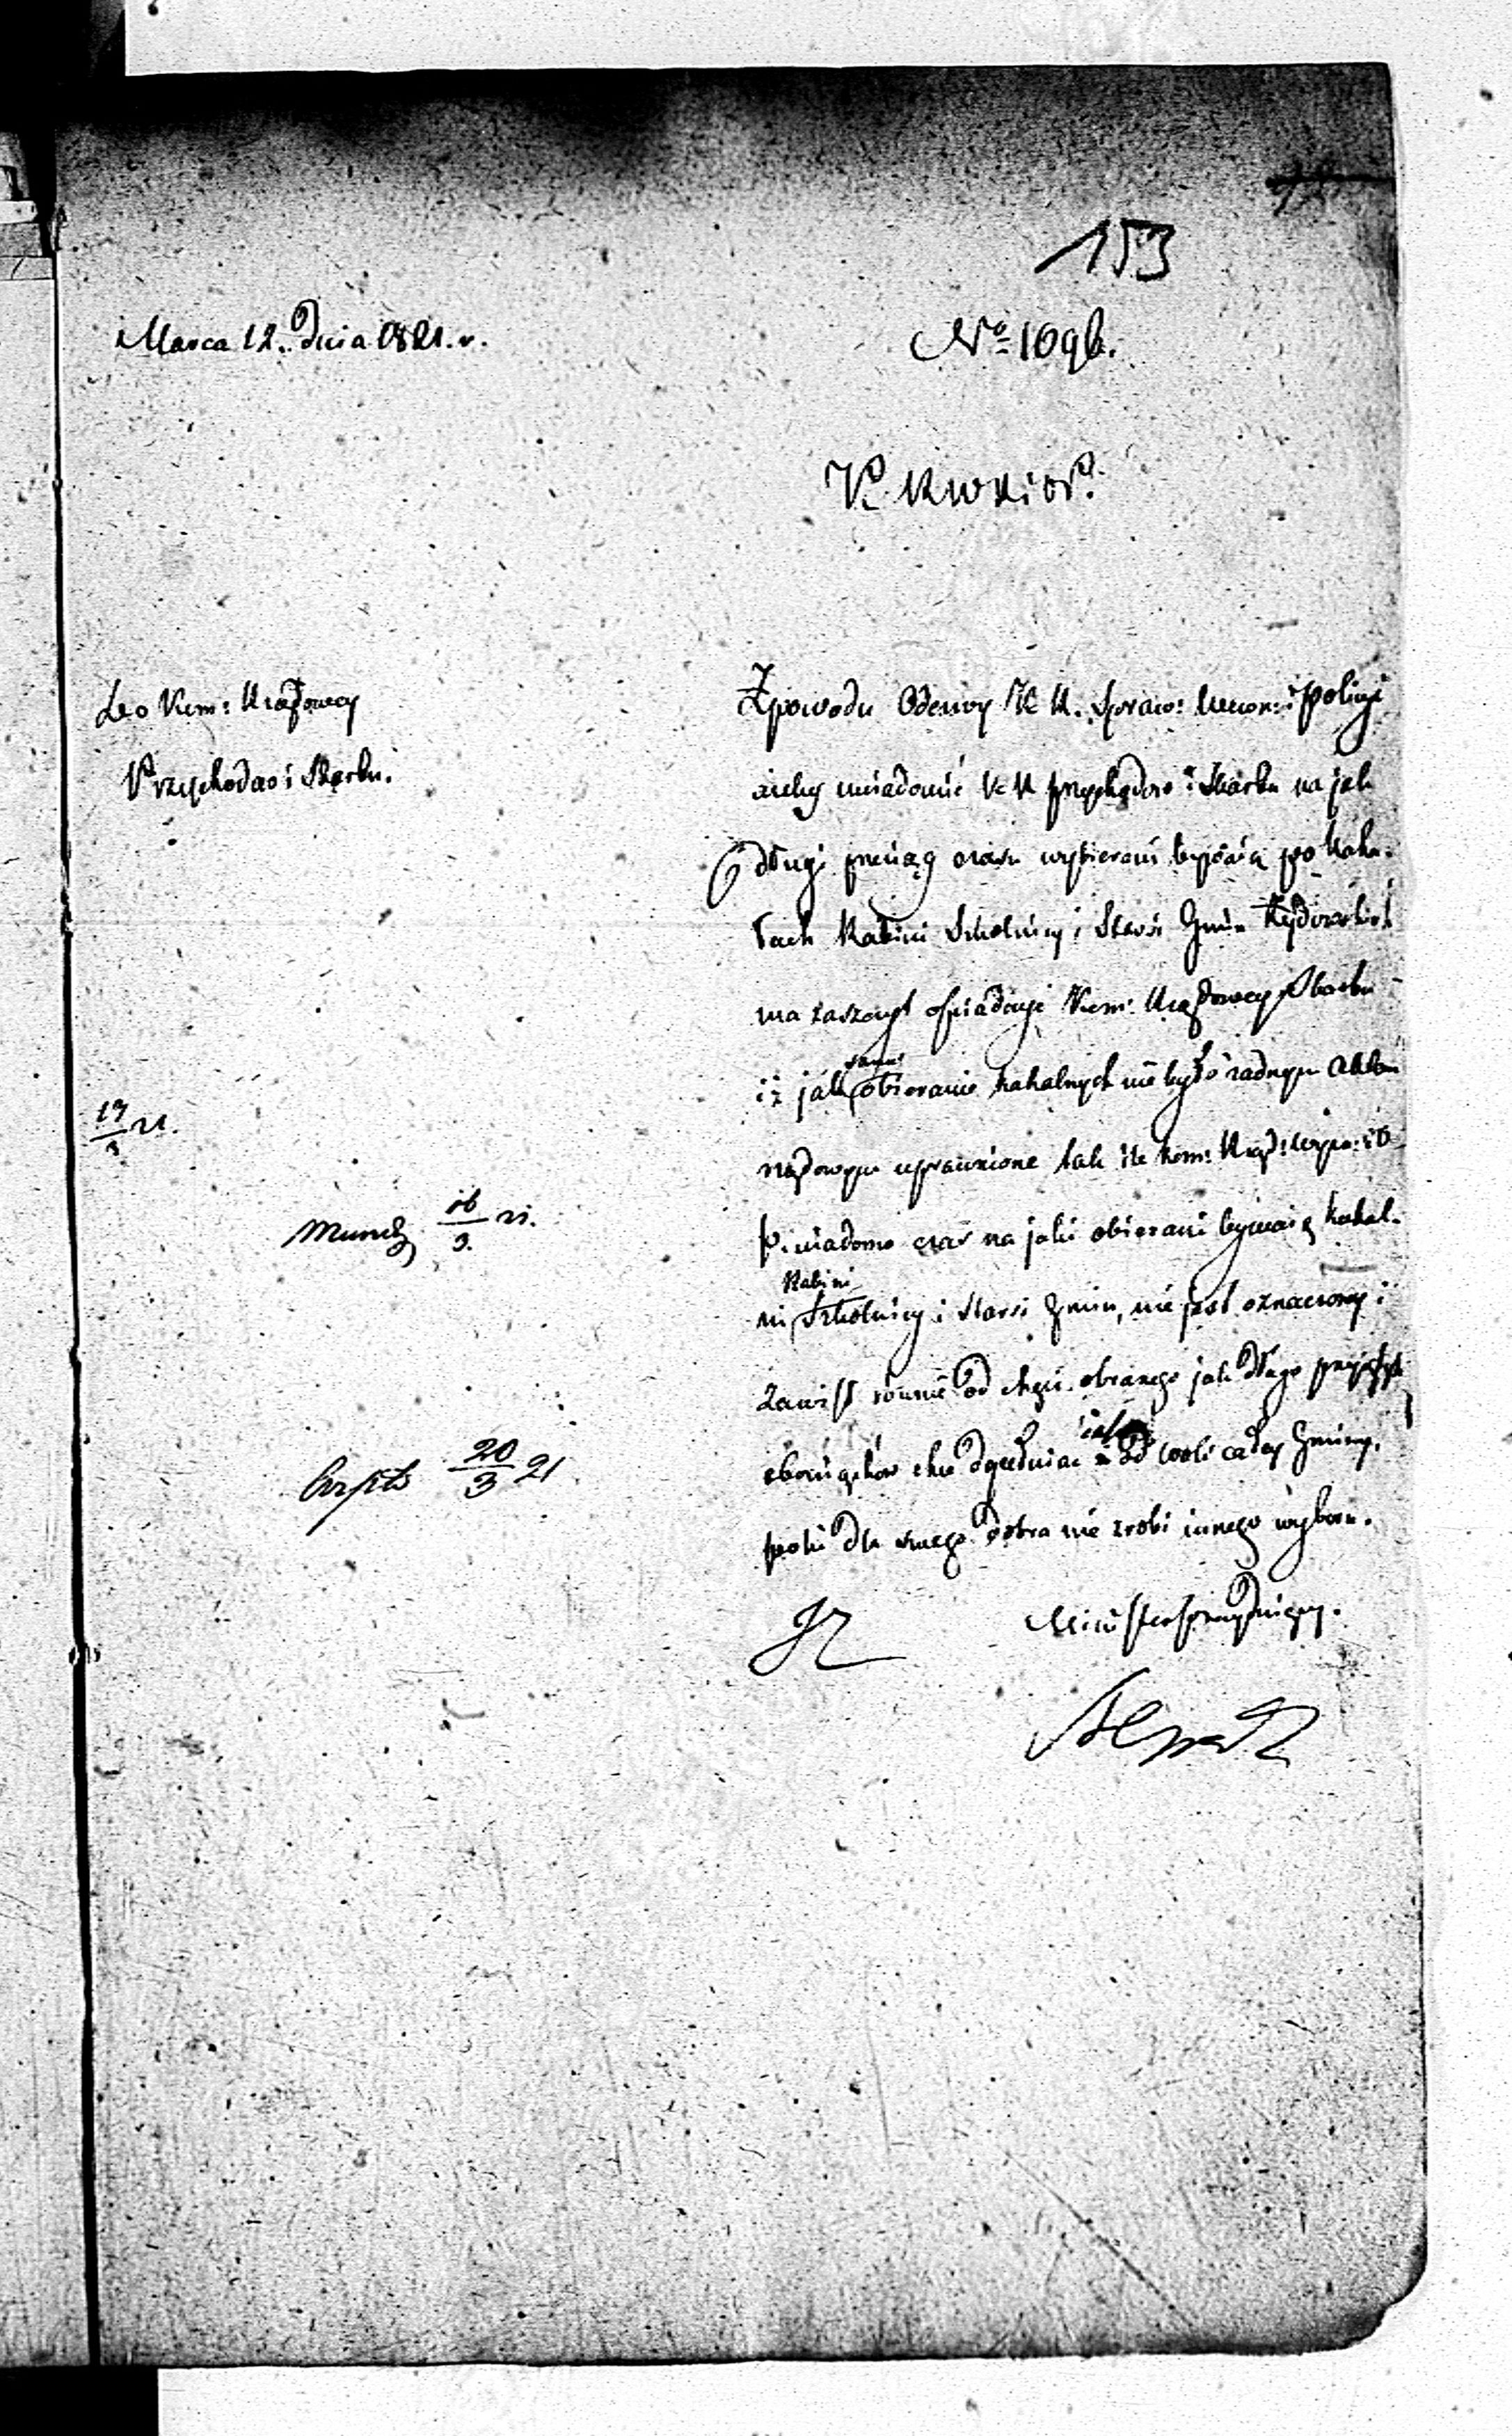 153
Marca 12. Dnia 1821. r.
No 1696.
K. R. W. R. i O. P.
Do Kom: Rządowey
Przychodów i Skarbu.
Z powodu Odezwy K. R. Spraw: Wewn: i Policyi
ażeby uwiadomić K R przychodów i Skarbu na jak
długi przeciąg czasu wybierani bywaią po Kaha-
łach Rabini Szkolnicy i Starsi Gmin Żydowskich
ma zaszczyt Kom: Rządowey Skarbu
iż jak samo obieranie kahalnych nie było żadnym Aktem
rządowym uprawnione tak ile Kom: Rząd: Wyzn: i O
P. wiadomo czas na jaki obierani bywaią kahal-
ni Rabini Szkolnicy i Starsi Gmin, nie jest oznaczony i
zawisł równie od chęci obranego jak długo przyjętych
obowiązków chce dopełniać od woli całey Gminy,
póki dla swego dobra nie zrobi innego wyboru.
Minister Prezyduiący.
17/3 21.
Mund 16/3. 21.
Exped 20/3 21